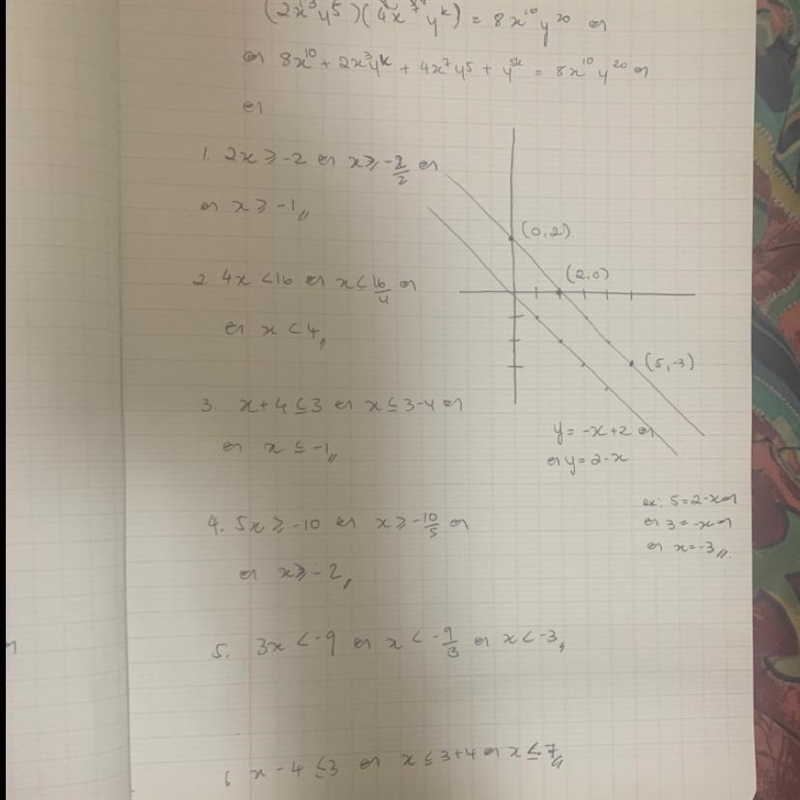 (2x³y⁵)(4x⁷y^k) = 8x¹⁰y²⁰ ⇔
⇔ 8x¹⁰ + 2x³y^k + 4x⁷y⁵ + y^5k = 8x¹⁰y²⁰ ⇔
⇔
1. 2x ≥ -2 ⇔ x ≥ -2/2 ⇔
⇔ x ≥ -1 //
2. 4x < 16 ⇔ x < 16/4 ⇔
⇔ x < 4 //
3. x + 4 ≤ 3 ⇔ x ≤ 3 - 4 ⇔
⇔ x ≤ -1 //
4. 5x ≥ -10 ⇔ x ≥ -10/5 ⇔
⇔ x ≥ -2 //
5. 3x < -9 ⇔ x < -9/3 ⇔ x < -3 //
6. x - 4 ≤ 3 ⇔ x ≤ 3 + 4 ⇔ x ≤ 7 //
(0,2)
(2,0)
(5,-3)
y = -x + 2 ⇔
⇔ y = 2 - x
ex: 5 = 2 - x ⇔
⇔ 3 = -x ⇔
⇔ x = -3 //.